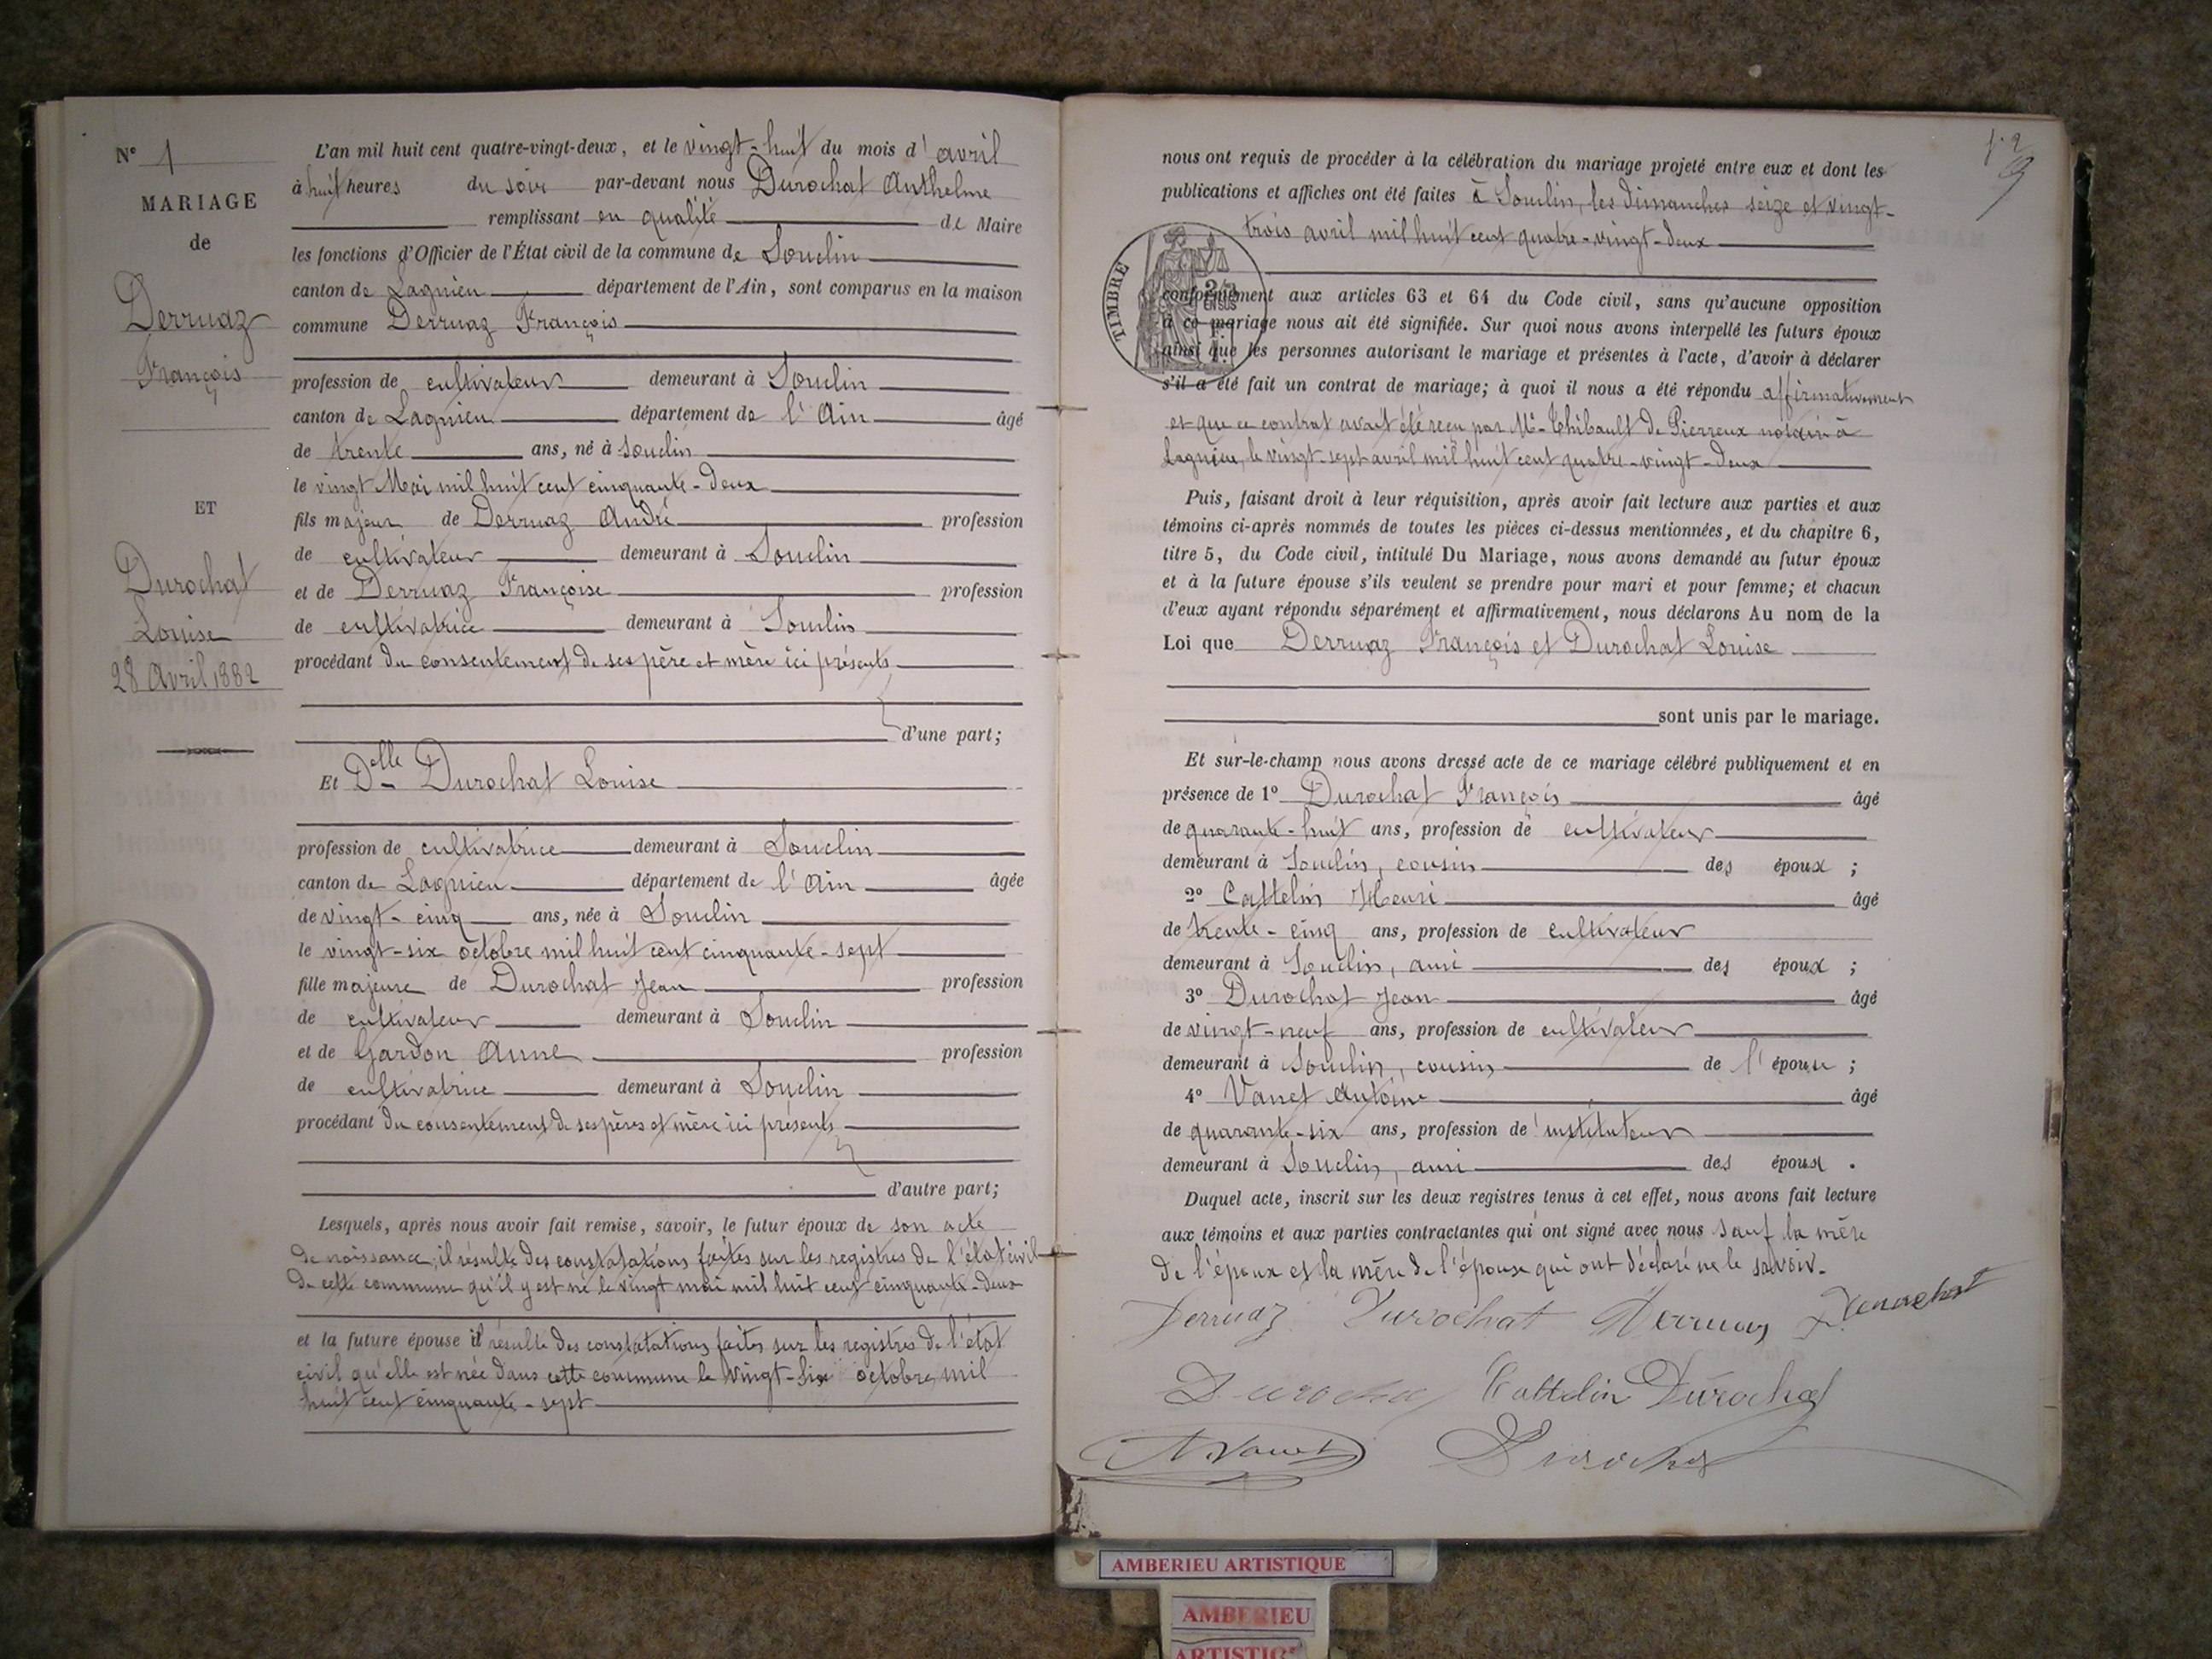 N° 1
MARIAGE
de
Derruaz
François
ET
Durochat
Louise
28 Avril 1882
L'an mil huit cent quatre-vingt-deux, et le vingt-huit du mois d'avril
à huit heures du soir par-devant nous Durochat Anthelme
remplissant en qualité de Maire
les fonctions d'Officier de l'État civil de la commune de Souclin
canton de Lagnieu département de l'Ain, sont comparus en la maison
commune Derruaz François
profession de cultivateur demeurant à Souclin
canton de Lagnieu département de l'Ain âgé
de trente ans, né à Souclin
le vingt Mai mil huit cent cinquante-deux
fils majeur de Derruaz André profession
de cultivateur demeurant à Souclin
et de Derruaz Françoise profession
de cultivatrice demeurant à Souclin
procédant du consentement de ses père et mère ici présents
d'une part;
Et Delle Durochat Louise
profession de cultivatrice demeurant à Souclin
canton de Lagnieu département de l'Ain âgée
de vingt-cinq ans, née à Souclin
le vingt-six octobre mil huit cent cinquante-sept
fille majeure de Durochat Jean profession
de cultivateur demeurant à Souclin
et de Gardon Anne profession
de cultivatrice demeurant à Souclin
procédant du consentement de ses pères et mère ici présents
d'autre part;
Lesquels, après nous avoir fait remise, savoir, le futur époux de son acte
de naissance, il résulte des constatations faites sur les registres de l'état civil
de cette commune qu'il y est né le vingt mai mil huit cent cinquante-deux
et la future épouse il résulte des constatations faites sur les registres de l'état
civil qu'elle est née dans cette commune le vingt-six octobre mil
huit cent cinquante-sept
nous ont requis de procéder à la célébration du mariage projeté entre eux et dont les
publications et affiches ont été faites à Souclin, les dimanches seize et vingt-
trois avril mil huit cent quatre-vingt-deux
TIMBRE
conformément aux articles 63 et 64 du Code civil, sans qu'aucune opposition
à ce mariage nous ait été signifiée. Sur quoi nous avons interpellé les futurs époux
ainsi que les personnes autorisant le mariage et présentes à l'acte, d'avoir à déclarer
s'il a été fait un contrat de mariage; à quoi il nous a été répondu affirmativement
et que ce contrat avait été reçu par Me Thibault de Pierreux notaire à
Lagnieu, le vingt-sept avril mil huit cent quatre-vingt-deux
Puis, faisant droit à leur réquisition, après avoir fait lecture aux parties et aux
témoins ci-après nommés de toutes les pièces ci-dessus mentionnées, et du chapitre 6,
titre 5, du Code civil, intitulé Du Mariage, nous avons demandé au futur époux
et à la future épouse s'ils veulent se prendre pour mari et pour femme; et chacun
d'eux ayant répondu séparément et affirmativement, nous déclarons Au nom de la
Loi que Derruaz François et Durochat Louise
sont unis par le mariage.
Et sur-le-champ nous avons dressé acte de ce mariage célébré publiquement et en
présence de 1° Durochat François âgé
de quarante-huit ans, profession de cultivateur
demeurant à Souclin, cousin des époux ;
2° Cattelin Henri âgé
de trente-cinq ans, profession de cultivateur
demeurant à Souclin, ami des époux ;
3° Durochat Jean âgé
de vingt-neuf ans, profession de cultivateur
demeurant à Souclin, cousin de l'épouse ;
4° Vanet Antoine âgé
de quarante-six ans, profession de instituteur
demeurant à Souclin, ami des époux .
Duquel acte, inscrit sur les deux registres tenus à cet effet, nous avons fait lecture
aux témoins et aux parties contractantes qui ont signé avec nous sauf la mère
de l'époux et la mère de l'épouse qui ont déclaré ne le savoir.
Derruaz Durochat Derruaz Durochat
Durochat Cattelin Durochat
A. Vanet Durochat
AMBERIEU ARTISTIQUE
AMBERIEU
ARTISTIQUE